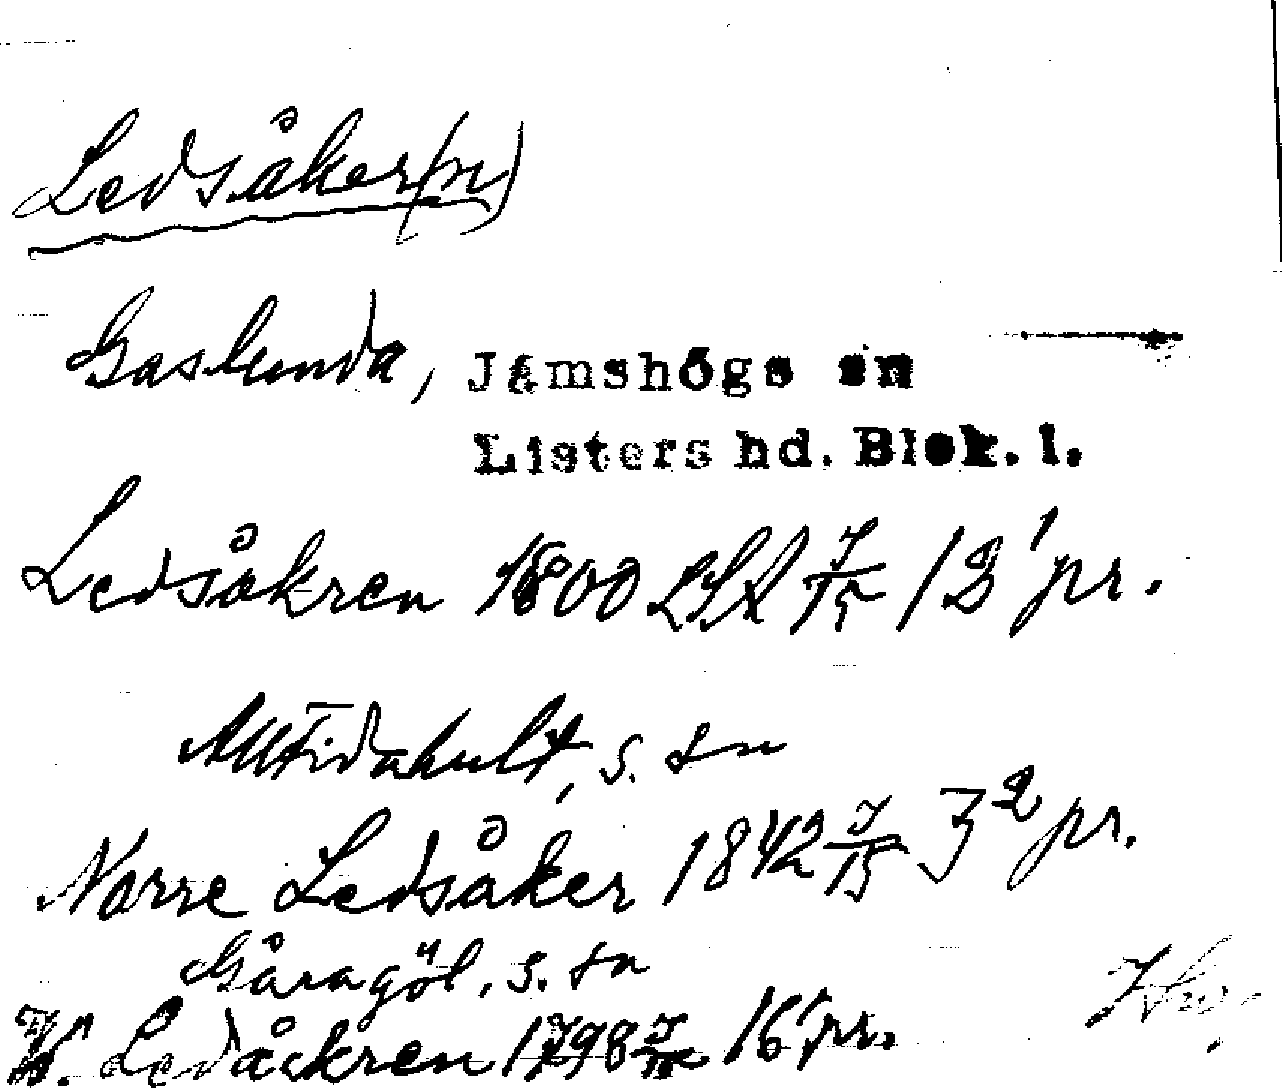 Ledsåker(n)
Gaslunda, Jämshögs sn
Listers hd. Blek. l.
Ledsåkren 1800 LSA 7/15 /3¹ pr.
Alltidahult, s. sn
Norre Ledsåker 1842 7/15 3² pr.
Gåragöl, s. sn
Ledåckren 1798 7/15 16¹ pr.